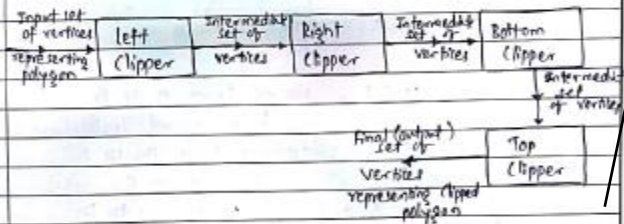 Input set
of vertices
representing
polygon
left
Clipper
Intermediate
set of
vertices
Right
Clipper
Intermediate
set of
vertices
Bottom
Clipper
Intermedi
set
of vertices
Top
Clipper
Final (output)
set of
vertices
representing Clipped
polygon